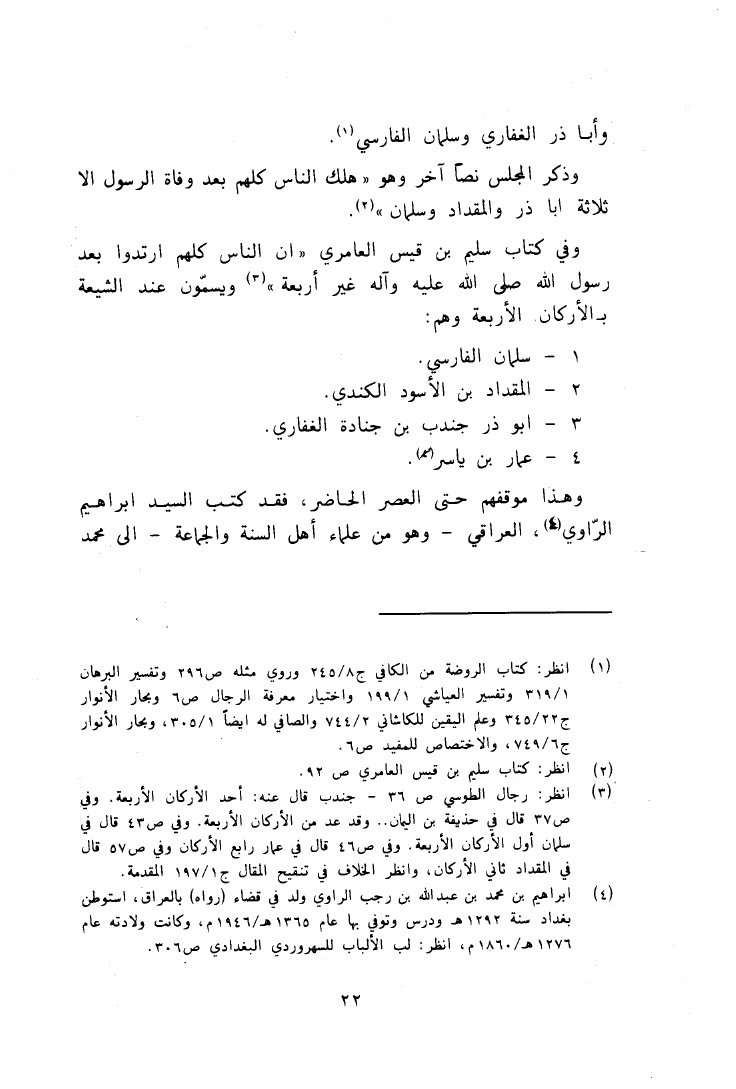 وأبـا ذر الغفاري وسلمان الفارسي(١).
وذكر المجلسي نصاً آخر وهو « هلك الناس كلهم بعد وفاة الرسول الا
ثلاثة ابا ذر والمقداد وسلمان »(٢).
وفي كتاب سليم بن قيس العامري « ان الناس كلهم ارتدوا بعد
رسول الله صلى الله عليه وآله غير أربعة »(٣) ويسمّون عند الشيعة
بـالأركان الأربعة وهم:
١ – سلمان الفارسي.
٢ – المقداد بن الأسود الكندي.
٣ – ابو ذر جندب بن جنادة الغفاري.
٤ – عمار بن ياسر.
وهـذا موقفهم حتـى العصر الحـاضر، فقـد كتـب السيـد ابراهـيم
الرّاوي(٤)، العراقي – وهو من علماء أهل السنة والجماعة – الى محمد
(١) انظر: كتاب الروضة من الكافي ج٢٤٥/٨ وروي مثله ص٢٩٦ وتفسير البرهان
٣١٩/١ وتفسير العياشي ١٩٩/١ واختيار معرفة الرجال ص٦ وبحار الأنوار
ج٣٤٥/٢٢ وعلم اليقين للكاشاني ٧٤٤/٢ والصافي له ايضاً ٣٠٥/١، وبحار الأنوار
ج٧٤٩/٦، والاختصاص للمفيد ص٦.
(٢) انظر: كتاب سليم بن قيس العامري ص ٩٢.
(٣) انظر: رجال الطوسي ص ٣٦ – جندب قال عنه: أحد الأركان الأربعة. وفي
ص٣٧ قال في حذيفة بن اليمان.. وقد عد من الأركان الأربعة. وفي ص٤٣ قال في
سلمان أول الأركان الأربعة. وفي ص٤٦ قال في عمار رابع الأركان وفي ص٥٧ قال
في المقداد ثاني الأركان، وانظر الخلاف في تنقيح المقال ج١٩٧/١ المقدمة.
(٤) ابراهيم بن محمد بن عبدالله بن رجب الراوي ولد في قضاء (رواه) بالعراق، استوطن
بغداد سنة ١٢٩٢ هـ ودرس وتوفي بها عام ١٣٦٥هـ/١٩٤٦م، وكانت ولادته عام
١٢٧٦هـ/١٨٦٠م، انظر: لب الألباب للسهروردي البغدادي ص٣٠٦.
٢٢